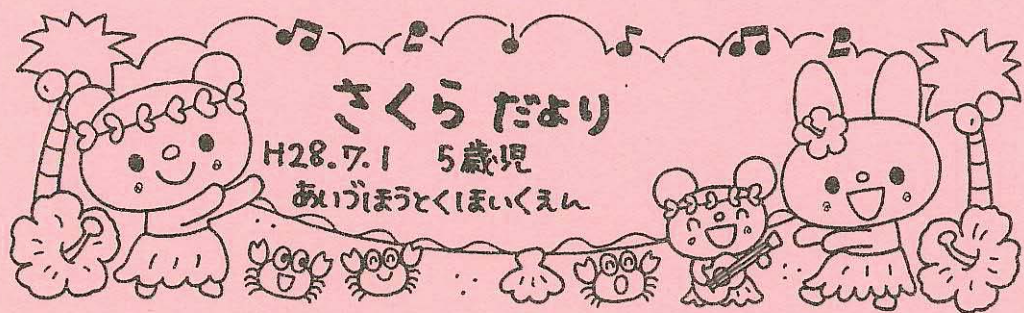 さくら だより
H28.7.1 5歳児
あいづほうとくほいくえん